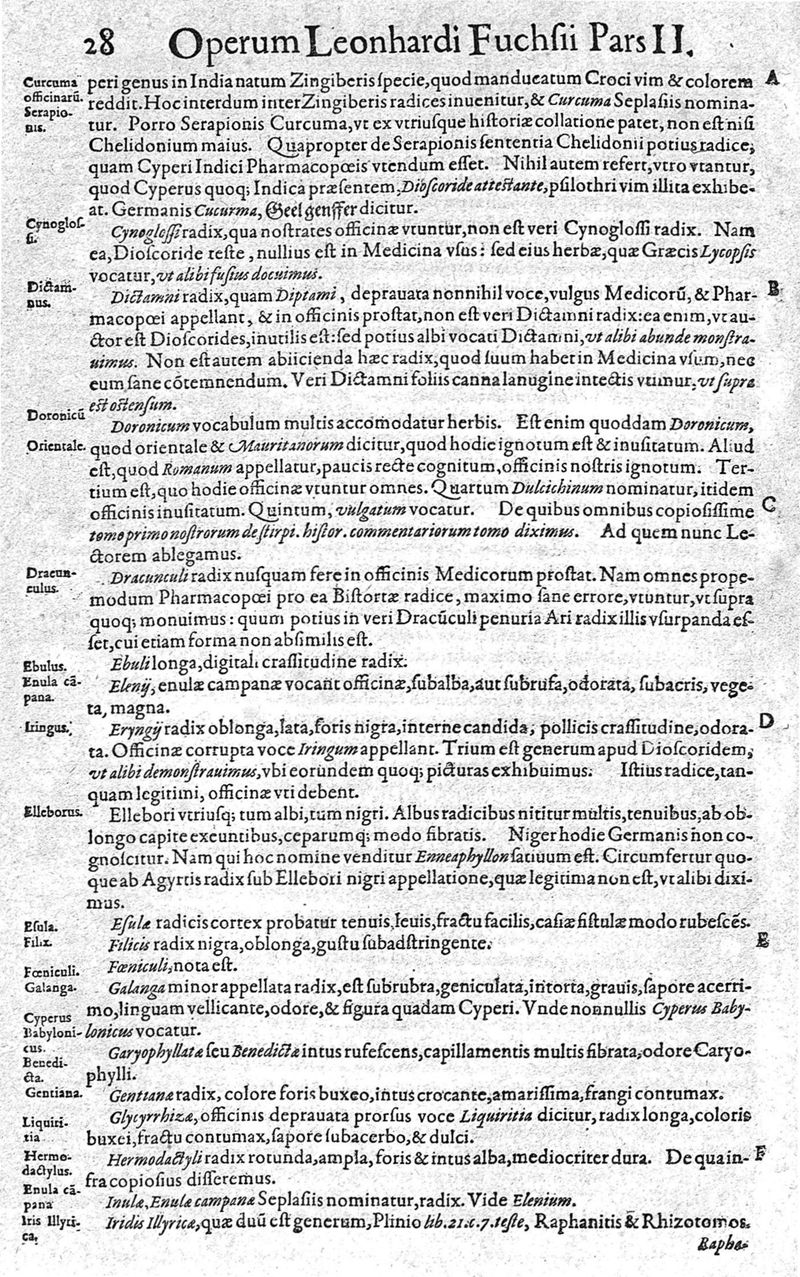 28 Operum Leonhardi Fuchsii Pars II.
Curcuma officinarũ. Serapionis.
peri genus in India natum Zingiberis specie, quod manducatum Croci vim & colorem A
reddit. Hoc interdum inter Zingiberis radices inuenitur, & Curcuma Seplasiis nomina-
tur. Porro Serapionis Curcuma, vt ex vtriusque historiæ collatione patet, non est nisi
Chelidonium maius. Quapropter de Serapionis sententia Chelidonii potius radice,
quam Cyperi Indici Pharmacopœis vtendum esset. Nihil autem refert, vtro vtantur,
quod Cyperus quoq; Indica præsentem, Dioscoride attestante, psilothri vim illita exhibe-
at. Germanis Cucurma, Geel genffer dicitur.
Cynoglos-
si.
Cynoglossi radix, qua nostrates officinæ vtuntur, non est veri Cynoglossi radix. Nam
ea, Dioscoride teste, nullius est in Medicina vsus: sed eius herbæ, quæ Græcis Lycopsis
vocatur, vt alibi fusius docuimus.
Dictam-
nus.
Dictamni radix, quam Diptami, deprauata nonnihil voce, vulgus Medicorũ, & Phar- B
macopœi appellant, & in officinis prostat, non est veri Dictamni radix: ea enim, vt au-
ctor est Dioscorides, inutilis est: sed potius albi vocati Dictamni, vt alibi abunde monstra-
uimus. Non est autem abiicienda hæc radix, quod suum habet in Medicina vsum, nec
eum sane cõtemnendum. Veri Dictamni foliis canna lanugine intectis vtimur, vt supra
est ostensum.
Doronicũ
Doronicum vocabulum multis accomodatur herbis. Est enim quoddam Doronicum,
Orientale.
quod orientale & Mauritanorum dicitur, quod hodie ignotum est & inusitatum. Aliud
est, quod Romanum appellatur, paucis recte cognitum, officinis nostris ignotum. Ter-
tium est, quo hodie officinæ vtuntur omnes. Quartum Dulcichinum nominatur, itidem
officinis inusitatum. Quintum, vulgatum vocatur. De quibus omnibus copiosissime C
tomo primo nostrorum de stirpi. histor. commentariorum tomo diximus. Ad quem nunc Le-
ctorem ablegamus.
Dracun-
culus.
Dracunculi radix nusquam fere in officinis Medicorum prostat. Nam omnes prope-
modum Pharmacopœi pro ea Bistortæ radice, maximo sane errore, vtuntur, vt supra
quoq; monuimus: quum potius in veri Dracũculi penuria Ari radix illis vsurpanda es-
set, cui etiam forma non absimilis est.
Ebulus.
Ebuli longa, digitali crassitudine radix.
Enula cã-
pana.
Elenij, enulæ campanæ vocant officinæ, subalba, aut subrufa, odorata, subacris, vege-
ta, magna.
Iringus.
Eryngij radix oblonga, lata, foris nigra, interne candida, pollicis crassitudine, odora- D
ta. Officinæ corrupta voce Iringum appellant. Trium est generum apud Dioscoridem,
vt alibi demonstrauimus, vbi eorundem quoq; picturas exhibuimus. Istius radice, tan-
quam legitimi, officinæ vti debent.
Elleborus.
Ellebori vtriusq; tum albi, tum nigri. Albus radicibus nititur multis, tenuibus, ab ob-
longo capite exeuntibus, ceparumq; modo fibratis. Niger hodie Germanis non co-
gnoscitur. Nam qui hoc nomine venditur Enneaphyllon satiuum est. Circumfertur quo-
que ab Agyrtis radix sub Ellebori nigri appellatione, quæ legitima non est, vt alibi dixi-
mus.
Esula.
Esulæ radicis cortex probatur tenuis, leuis, fractu facilis, casiæ fistulæ modo rubescẽs.
Filix.
Filicis radix nigra, oblonga, gustu subadstringente. E
Fœniculi.
Fœniculi, nota est.
Galanga.
Galanga minor appellata radix, est subrubra, geniculata, intorta, grauis, sapore acerri-
Cyperus
Babyloni-
cus.
mo, linguam vellicante, odore, & figura quadam Cyperi. Vnde nonnullis Cyperus Baby-
lonicus vocatur.
Benedi-
cta.
Garyophyllatæ seu Benedictæ intus rufescens, capillamentis multis fibrata, odore Caryo-
phylli.
Gentiana.
Gentianæ radix, colore foris buxeo, intus crocante, amarissima, frangi contumax.
Liquiri-
tia
Glycyrrhizæ, officinis deprauata prorsus voce Liquiritia dicitur, radix longa, coloris
buxei, fractu contumax, sapore subacerbo, & dulci.
Hermo-
dactylus.
Hermodactyli radix rotunda, ampla, foris & intus alba, mediocriter dura. De qua in- F
fra copiosius disseremus.
Enula cã-
pana
Inulæ, Enula campana Seplasiis nominatur, radix. Vide Elenium.
Iris Illyri-
ca.
Iridis Illyricæ, quæ duũ est generum, Plinio lib. 21. c. 7. teste, Raphanitis & Rhizotomos.
Rapha-